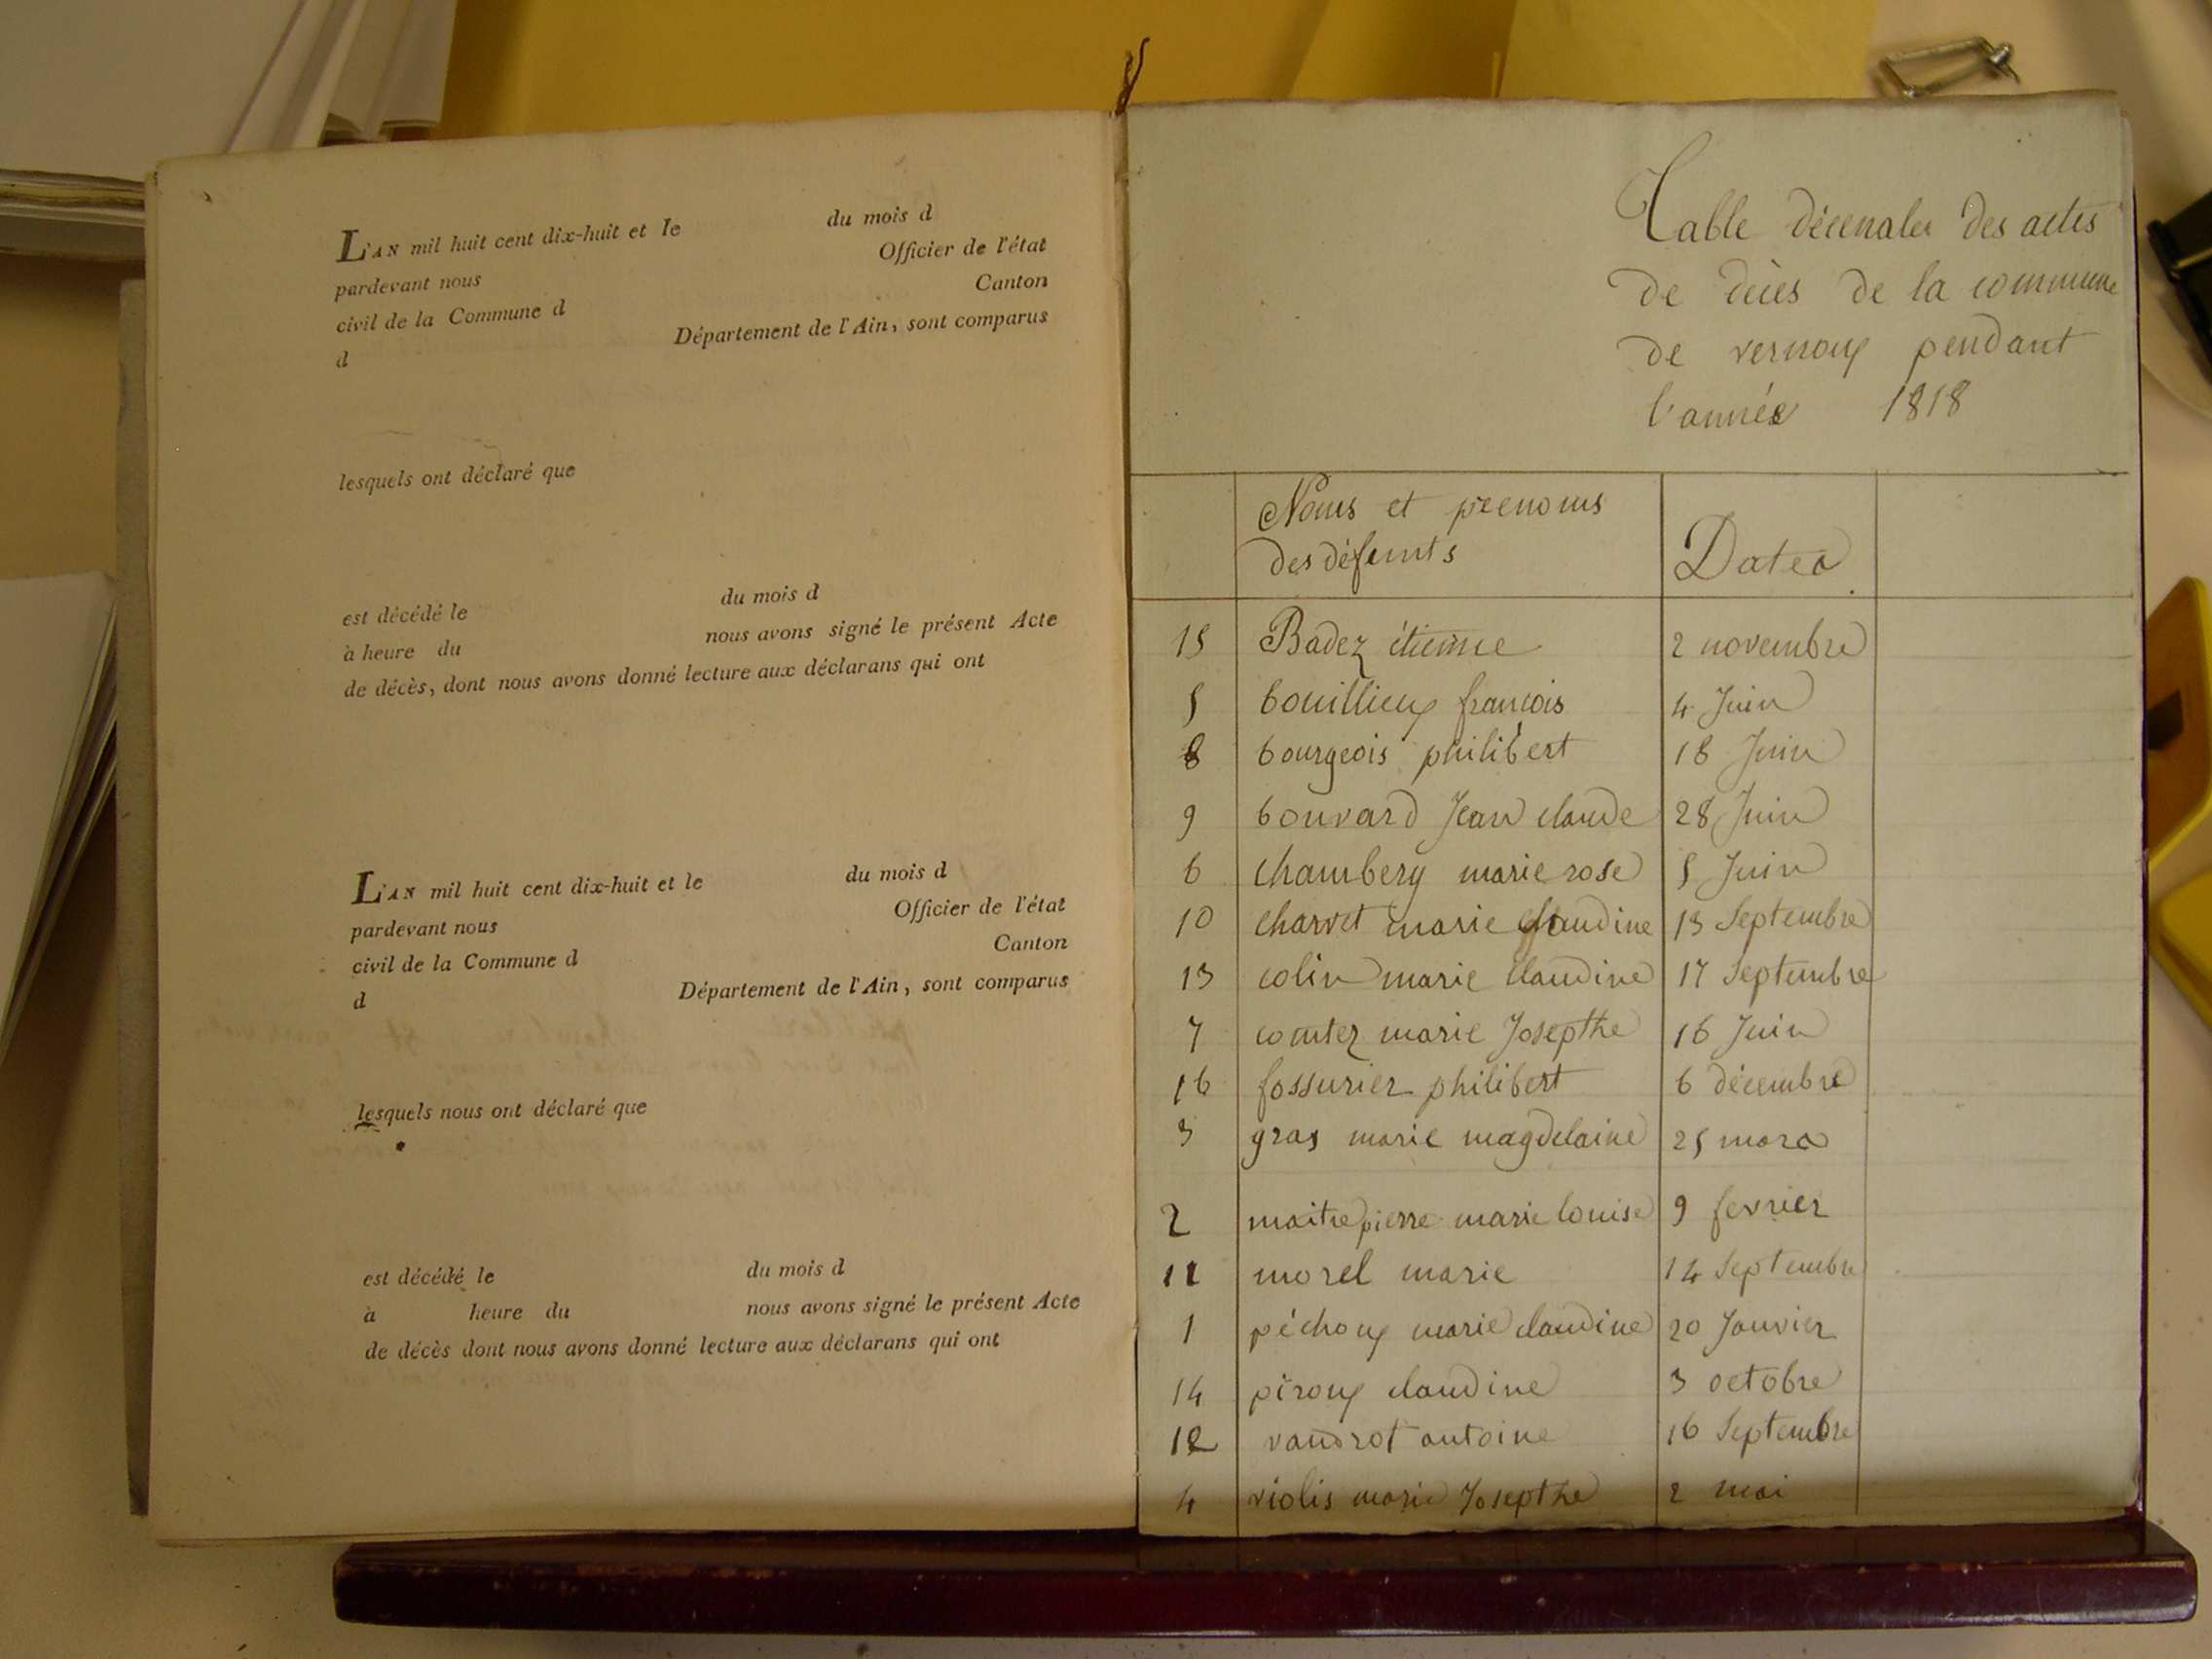 L'AN mil huit cent dix-huit et le du mois d
pardevant nous Officier de l'état
civil de la Commune d Canton
d Département de l'Ain, sont comparus
lesquels ont déclaré que
est décédé le du mois d
à heure du nous avons signé le présent Acte
de décès, dont nous avons donné lecture aux déclarans qui ont
L'AN mil huit cent dix-huit et le du mois d
pardevant nous Officier de l'état
civil de la Commune d Canton
d Département de l'Ain, sont comparus
lesquels nous ont déclaré que
est décédé le du mois d
à heure du nous avons signé le présent Acte
de décès dont nous avons donné lecture aux déclarans qui ont
Table décenales des actes
de décès de la commune
de vernoux pendant
l'année 1818
Noms et prenoms
des défunts Dates
15 Badez étienne 2 novembre
5 bouillieux francois 4 Juin
8 bourgeois philibert 18 Juin
9 bouvard Jean claude 28 Juin
6 chambery marie rose 5 Juin
10 charvet marie claudine 13 Septembre
13 colin marie claudine 17 Septembre
7 comtez marie Josepthe 16 Juin
16 fossurier philibert 6 décembre
3 gras marie magdelaine 25 mars
2 maitrepierre marie louise 9 fevrier
11 morel marie 14 Septembre
1 péchoux marie claudine 20 Janvier
14 piroux claudine 3 octobre
12 vaudrot antoine 16 Septembre
4 violis marie Josepthe 2 mai